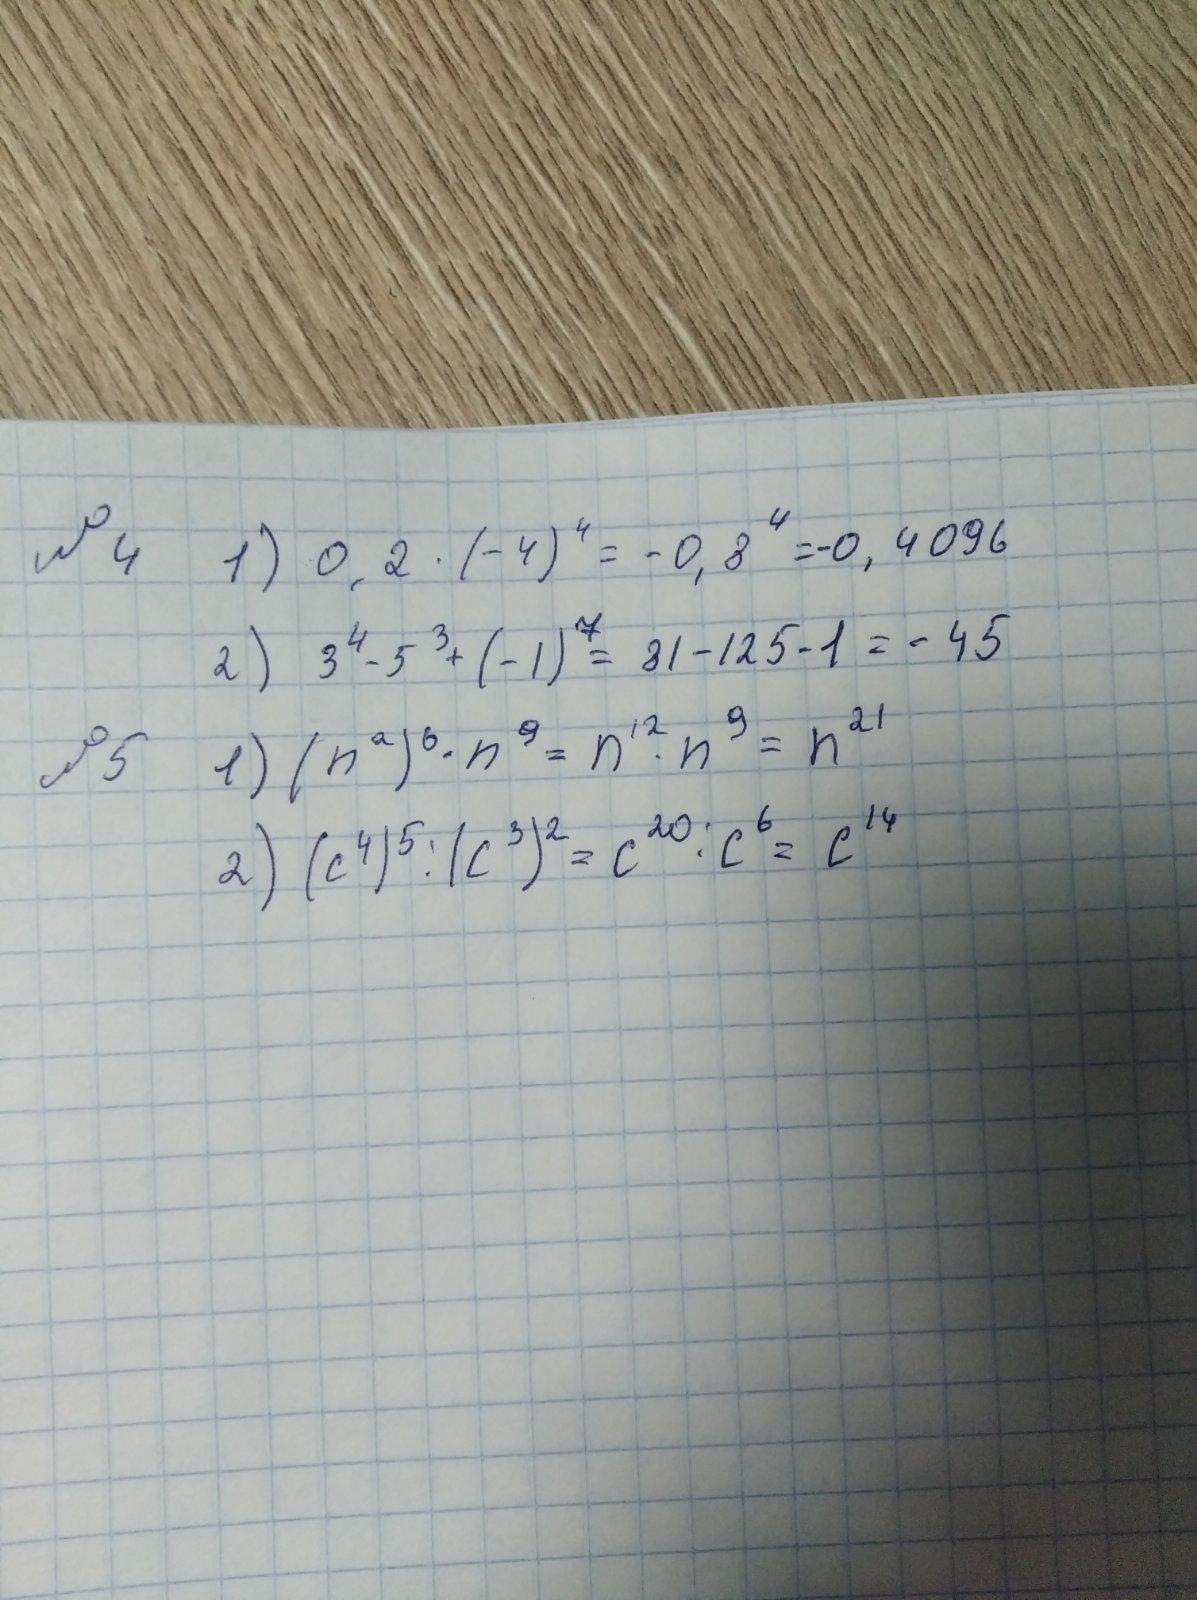 №4 1) 0,2 · (-4)⁴ = -0,8⁴ = -0,4096
2) 3⁴ - 5³ + (-1)⁷ = 81 - 125 - 1 = - 45
№5 1) (n²)⁶ · n⁹ = n¹² · n⁹ = n²¹
2) (c⁴)⁵ : (c³)² = c²⁰ : c⁶ = c¹⁴